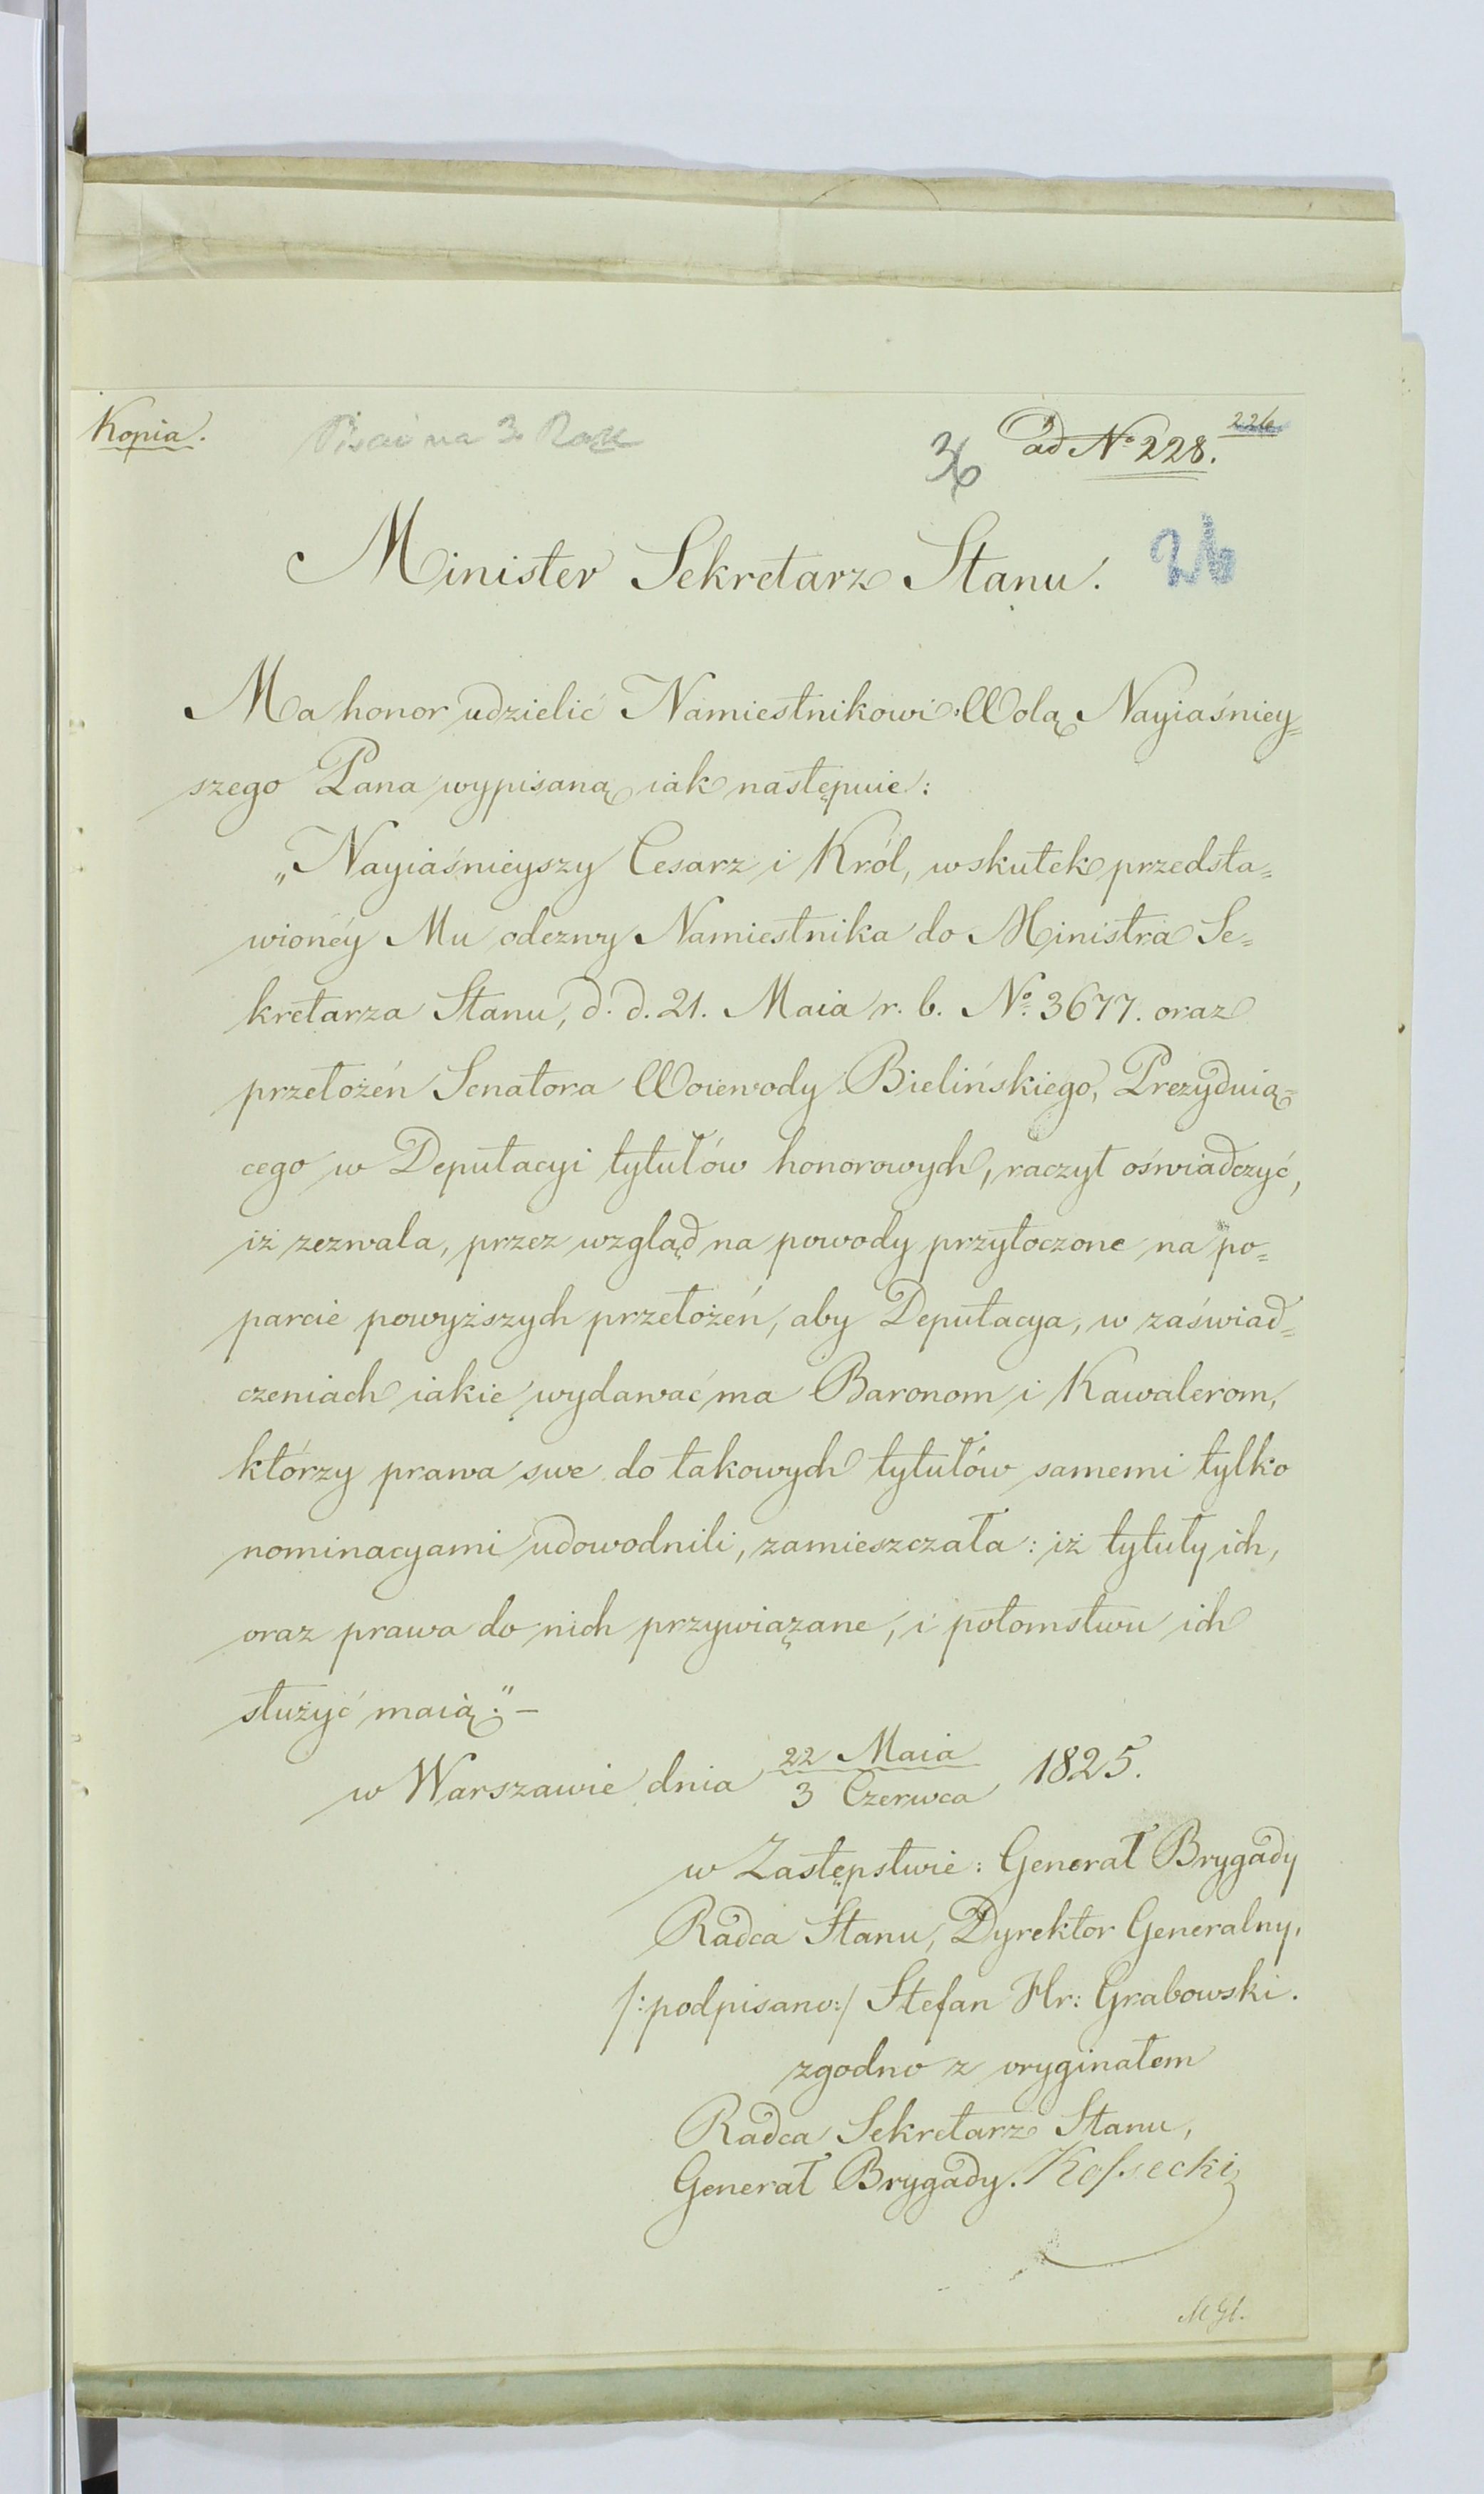 Kopia.
ad No 228.
226
36
26
Minister Sekretarz Stanu.
Ma honor udzielić Namiestnikowi Wolą Nayiaśniey=
szego Pana wypisaną iak następuie:
„Nayiaśnieyszy Cesarz i Król, wskutek przedsta=
wionéy Mu odezwy Namiestnika do Ministra Se=
kretarza Stanu, d. d. 21. Maia r. b. No 3677. oraz
przełożeń Senatora Woiewody Bielińskiego, Prezyduią=
cego w Deputacyi tytułów honorowych, raczył oświadczyć,
iż zezwala, przez wzgląd na powody przytoczone na po=
parcie powyższych przełożeń, aby Deputacya, w zaświad=
czeniach iakie wydawać ma Baronom i Kawalerom,
którzy prawa swe do takowych tytułów samemi tylko
nominacyami udowodnili, zamieszczała: iż tytuły ich,
oraz prawa do nich przywiązane, i potomstwu ich
służyć maią." —
w Warszawie dnia 22 Maia / 3 Czerwca 1825.
w Zastępstwie: Generał Brygady
Radca Stanu, Dyrektor Generalny,
/:podpisano:/ Stefan Hr: Grabowski.
zgodno z oryginałem
Radca Sekretarz Stanu,
Generał Brygady. Kossecki